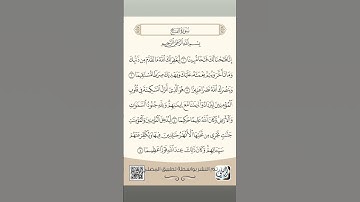 سورة الفتح
بسم الله الرحمن الرحيم
إنا فتحنا لك فتحا مبينا ١ ليغفر لك الله ما تقدم من ذنبك
وما تأخر ويتم نعمته عليك ويهديك صراطا مستقيما ٢
وينصرك الله نصرا عزيزا ٣ هو الذي أنزل السكينة في قلوب
المؤمنين ليزدادوا إيمانا مع إيمانهم ولله جنود السماوات
والأرض وكان الله عليما حكيما ٤ ليدخل المؤمنين والمؤمنات
جنات تجري من تحتها الأنهار خالدين فيها ويكفر عنهم
سيئاتهم وكان ذلك عند الله فوزا عظيما ٥
تم النشر بواسطة تطبيق المصلي